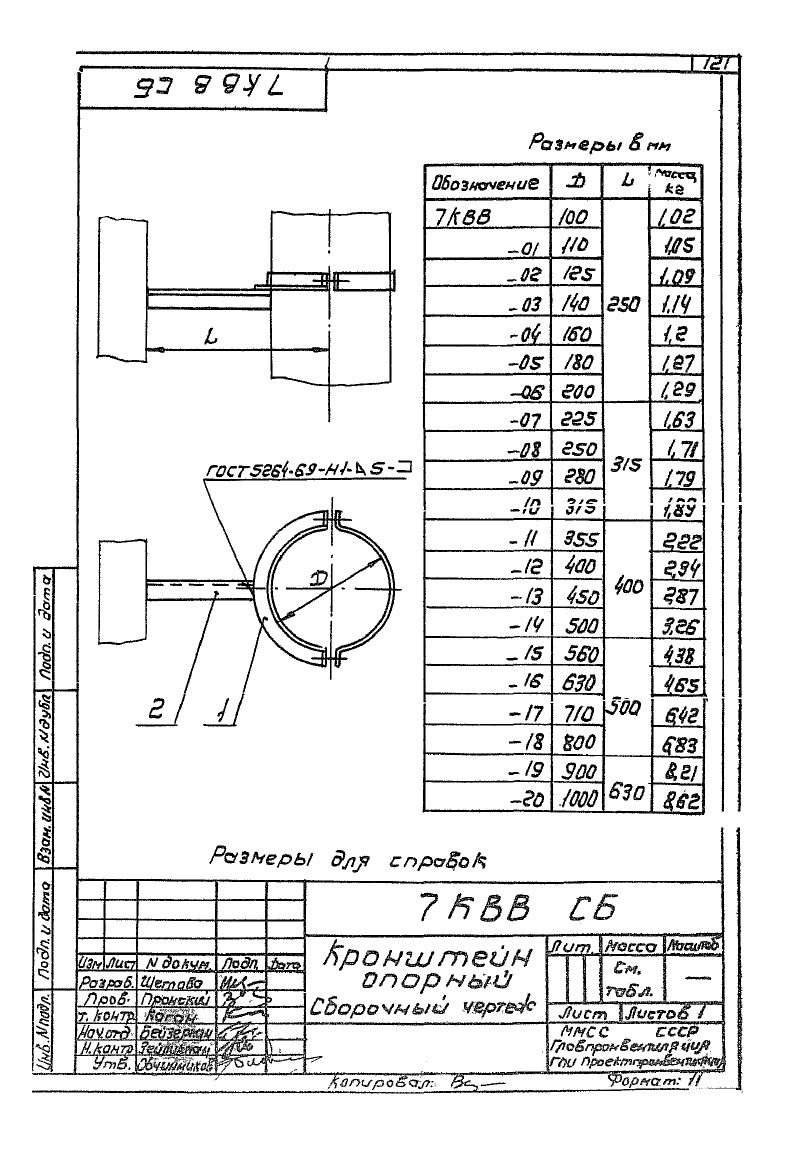 121
7КВВ СБ
Размеры в мм
Обозначение D L Масса, кг
7КВВ 100 250 1,02
-01 110 1,05
-02 125 1,09
-03 140 1,14
-04 160 1,2
-05 180 1,27
-06 200 1,29
-07 225 315 1,63
-08 250 1,71
-09 280 1,79
-10 315 1,89
-11 355 400 2,22
-12 400 2,94
-13 450 2,87
-14 500 3,26
-15 560 500 4,38
-16 630 4,65
-17 710 6,42
-18 800 6,83
-19 900 630 8,21
-20 1000 8,62
L
ГОСТ 5264-69-Н1-⊿5-⊐
D
2 1
Размеры для справок
Инв. № подл. Подп. и дата Взам. инв. № Инв. № дубл. Подп. и дата
7КВВ СБ
Изм Лист N докум. Подп. Дата
Разраб. Шетова
Пров. Пронский
Т. контр. Каган
Нач. отд. Бейзерман
Н. контр.
Утв. Овчинников
Кронштейн
опорный
Сборочный чертеж
Лит. Масса Масштаб
См.
табл.
—
Лист Листов 1
ММСС СССР
Главпромвентиляция
ГПИ Проектпромвентиляция
Копировал:
Формат: 11